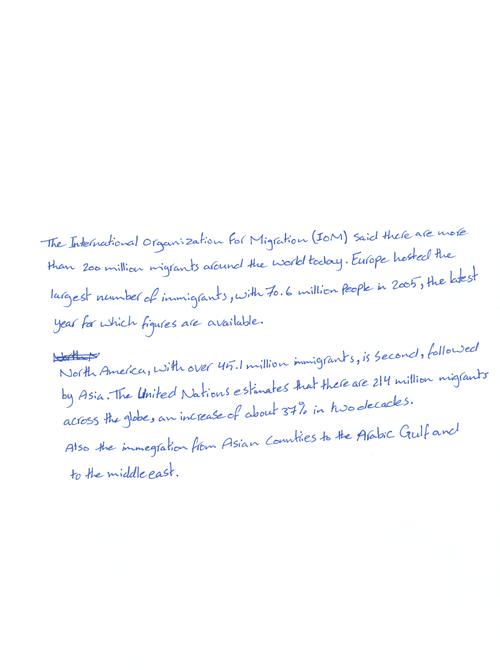 The International Organization for Migration (IOM) said there are more
than 200 million migrants around the world today. Europe hosted the
largest number of immigrants, with 70.6 million People in 2005, the latest
year for which figures are available.
North America, with over 45.1 million immigrants, is second, followed
by Asia. The United Nations estimates that there are 214 million migrants
across the globe, an increase of about 37% in two decades.
Also the immegration from Asian Counties to the Arabic Gulf and
to the middle east.